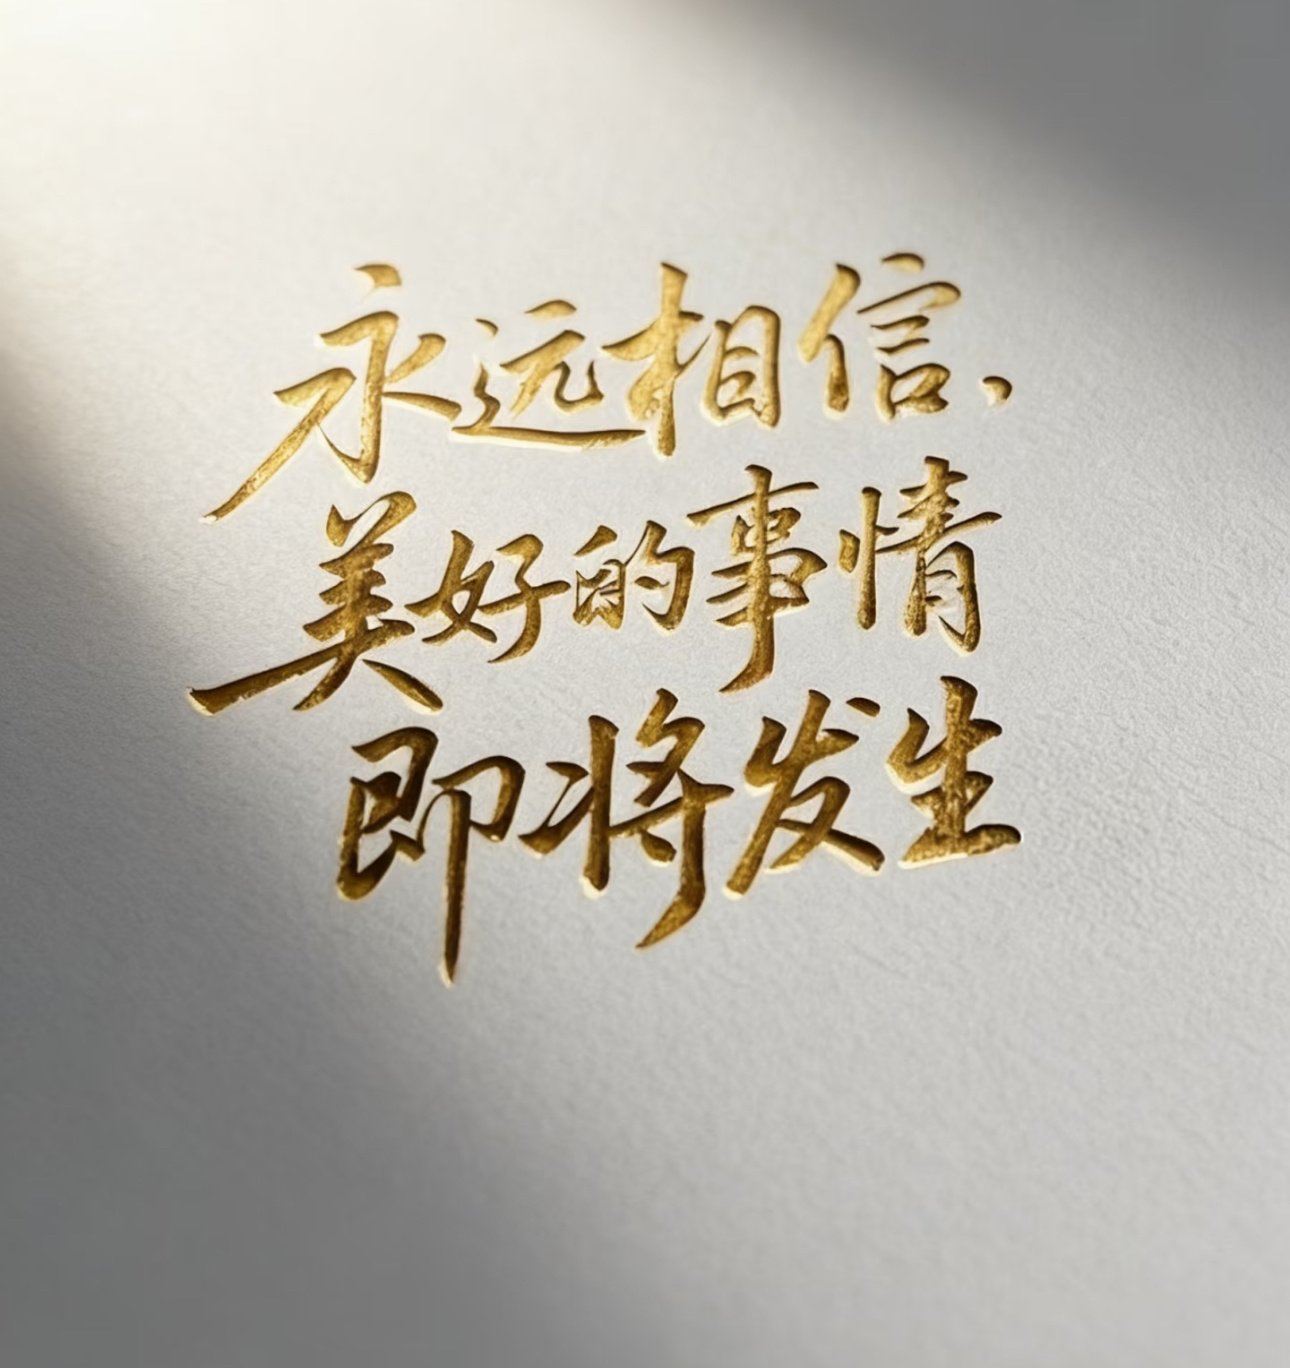 永远相信,
美好的事情
即将发生